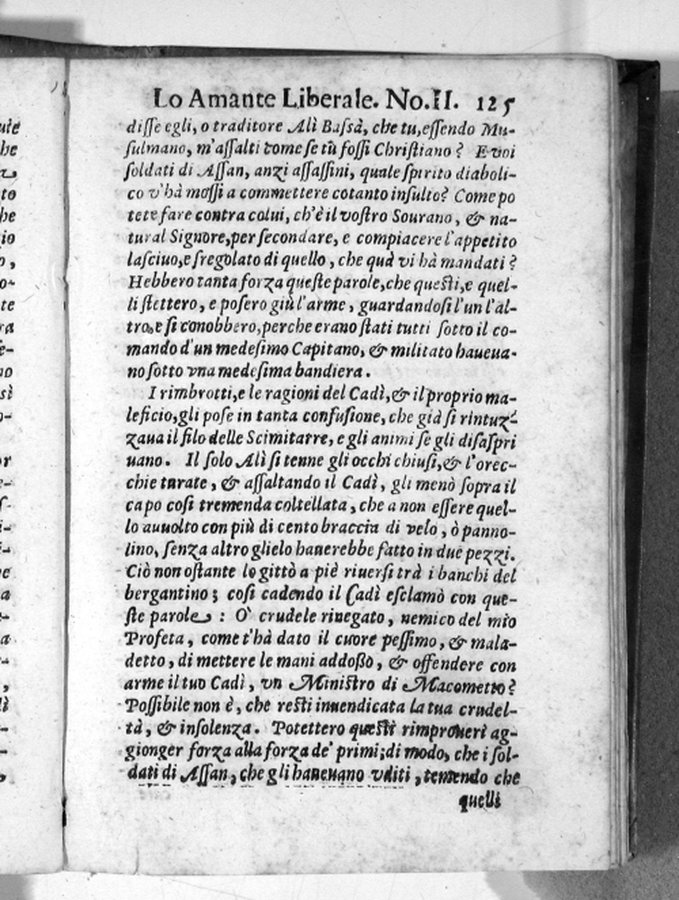 Lo Amante Liberale. No.II. 125
disse egli, o traditore Alì Bassà, che tu, essendo Mu-
sulmano, m'assalti come se tù fossi Christiano? E voi
soldati di Assan, anzi assassini, quale spirito diaboli-
co v'hà mossi a commettere cotanto insulto? Come po
tete fare contra colui, ch'è il vostro Sourano, & na-
tural Signore, per secondare, e compiacere l'appetito
lasciuo, e sregolato di quello, che quà vi hà mandati?
Hebbero tanta forza queste parole, che questi, e quel-
li stettero, e posero giù l'arme, guardandosi l'un l'al-
tro, e si conobbero, perche erano stati tutti sotto il co-
mando d'un medesimo Capitano, & militato haueua-
no sotto vna medesima bandiera.
I rimbrotti, e le ragioni del Cadì, & il proprio ma-
leficio, gli pose in tanta confusione, che già si rintuz-
zaua il filo delle Scimitarre, e gli animi se gli disaspri
uano. Il solo Alì si tenne gli occhi chiusi, & l'orec-
chie turate, & assaltando il Cadì, gli menò sopra il
capo così tremenda coltellata, che a non essere quel-
lo auuolto con più di cento braccia di velo, ò panno-
lino, senza altro glielo hauerebbe fatto in due pezzi.
Ciò non ostante lo gittò a piè riuersi trà i banchi del
bergantino; così cadendo il Cadì esclamò con que-
ste parole: O' crudele rinegato, nemico del mio
Profeta, come t'hà dato il cuore pessimo, & mala-
detto, di mettere le mani addosso, & offendere con
arme il tuo Cadì, vn Ministro di Macometto?
Possibile non è, che resti inuendicata la tua crudel-
tà, & insolenza. Potettero questi rimproueri ag-
gionger forza alla forza de' primi; di modo, che i sol-
dati di Assan, che gli haueuano vditi, temendo che
quelli